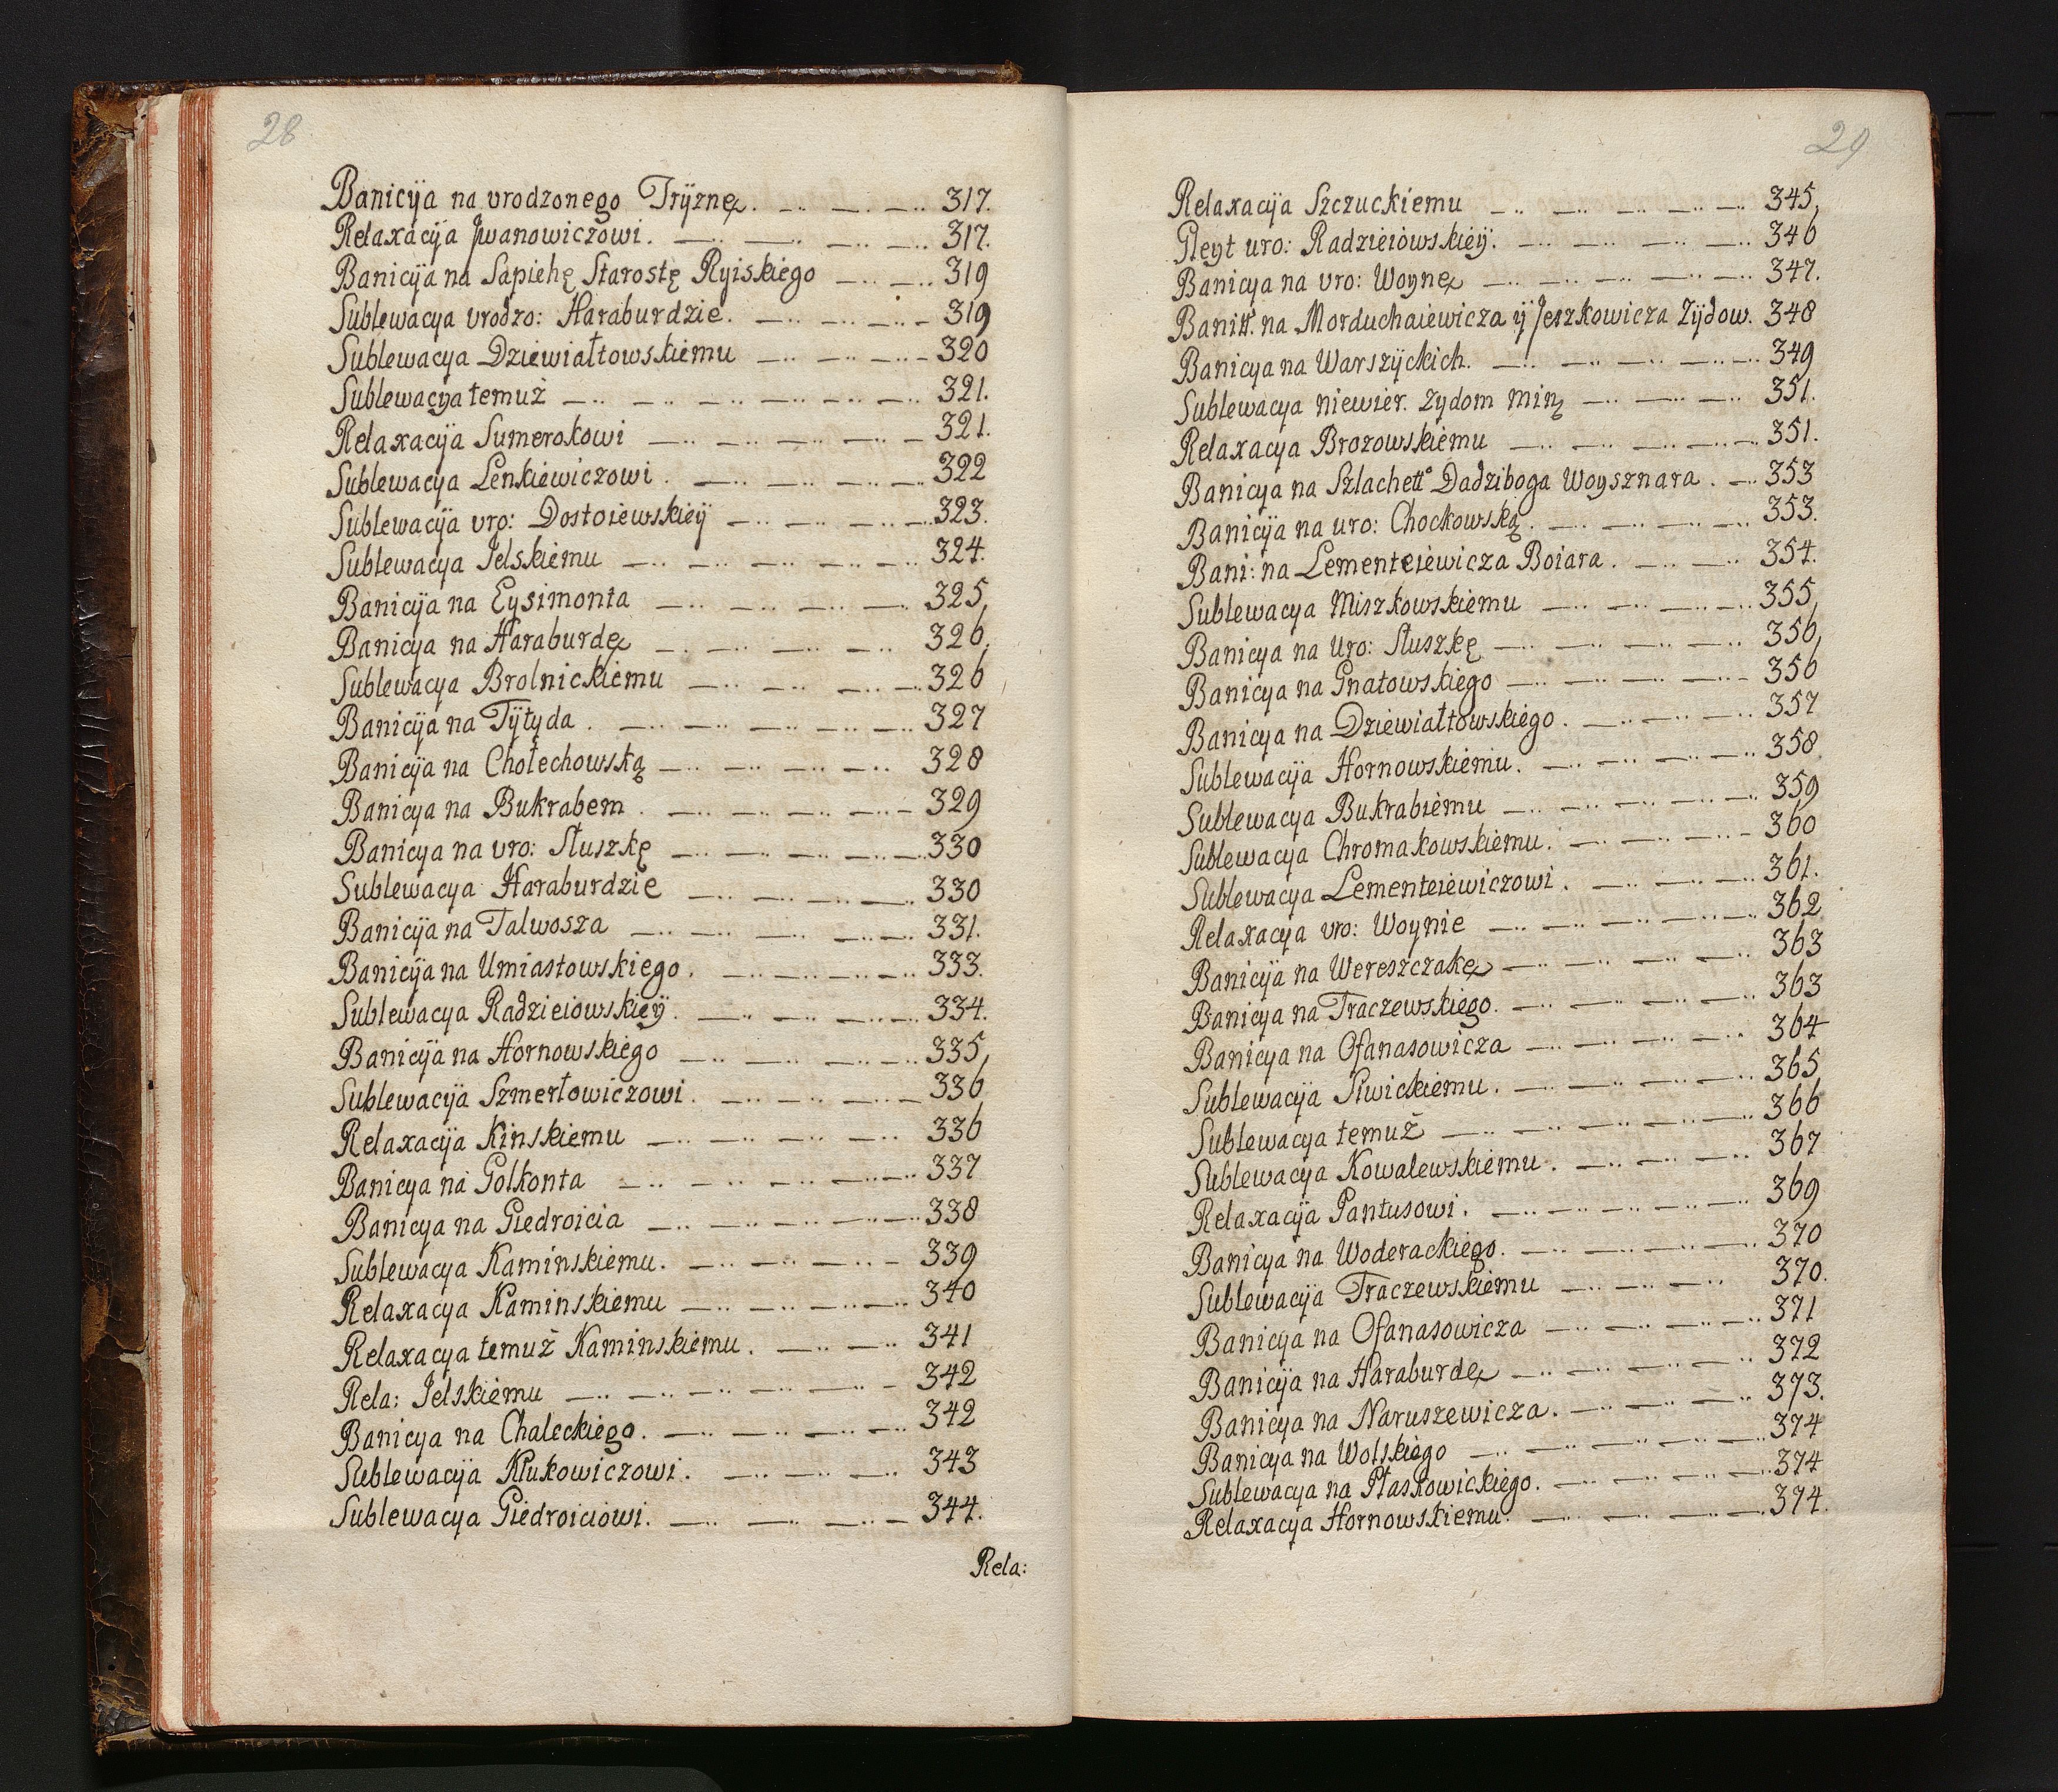 28
Banicÿa na vrodzonego Trÿznę. 317.
Relaxacÿa Jwanowiczowi. 317.
Banicÿa na Sapiehę Starostę Ryiskiego 319
Sublewacya vrodzo: Haraburdzie. 319
Sublewacya Dziewiałtowskiemu 320
Sublewacya temuż 321.
Relaxacÿa Sumerokowi 321.
Sublewacya Lenkiewiczowi. 322
Sublewacÿa vro: Dostoiewskieÿ 323.
Sublewacya Jelskiemu 324.
Banicÿa na Eysimonta 325,
Banicya na Haraburdę 326,
Sublewacya Brolnickiemu 326
Banicÿa na Tÿtyda. 327
Banicÿa na Chołechowską 328
Banicya na Bukrabem. 329
Banicya na vro: Słuszkę 330
Sublewacya Haraburdzie 330
Banicÿa na Talwosza 331.
Banicÿa na Umiastowskiego. 333.
Sublewacya Radzieiowskieÿ. 334.
Banicÿa na Hornowskiego 335,
Sublewacÿa Szmerłowiczowi. 336,
Relaxacÿa Kinskiemu 336
Banicya na Golkonta 337
Banicya na Giedroicia 338
Sublewacya Kaminskiemu. 339
Relaxacya Kaminskiemu 340
Relaxacya temuż Kaminskiemu. 341
Rela: Jelskiemu 342
Banicya na Chaleckiego. 342
Sublewacÿa Kłukowiczowi. 343
Sublewacya Giedroiciowi. 344.
Rela:
29
Relaxacÿa Szczuckiemu 345,
Gleyt uro: Radzieiowskieÿ. 346
Banicya na vro: Woynę 347.
Banitt. na Morduchaiewicza ÿ Jeszkowicza Zÿdow. 348
Banicya na Warszÿckich. 349
Sublewacya niewier. Zydom Minz 351.
Relaxacya Brozowskiemu 351.
Banicya na Szlachett° Dadziboga Woysznara. 353
Banicÿa na uro: Chockowską. 353.
Bani: na Lementeiewicza Boiara. 354.
Sublewacya Miszkowskiemu 355,
Banicya na Uro: Słuszkę 356,
Banicya na Gnatowskiego 356
Banicya na Dziewiałtowskiego. 357
Sublewacÿa Hornowskiemu. 358.
Sublewacya Bukrabiemu 359
Sublewacya Chromakowskiemu. 360
Sublewacya Lementeiewiczowi. 361.
Relaxacya vro: Woynie 362
Banicÿa na Wereszczakę 363
Banicya na Traczewskiego. 363
Banicya na Ofanasowicza 364
Sublewacÿa Siwickiemu. 365
Sublewacya temuż 366
Sublewacya Kowalewskiemu. 367
Relaxacÿa Pantusowi. 369
Banicya na Woderackiego. 370
Sublewacÿa Traczewskiemu 370.
Banicÿa na Ofanasowicza 371
Banicÿa na Haraburdę 372
Banicya na Naruszewicza. 373.
Banicya na Wolskiego 374
Sublewacya na Płaskowickiego. 374
Relaxacya Hornowskiemu. 374.